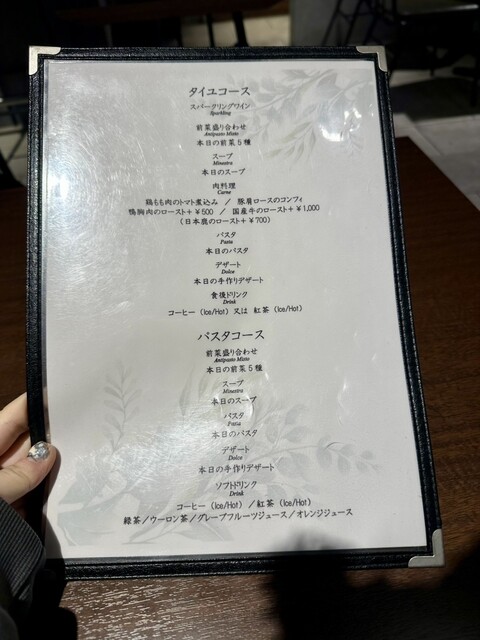 タイユコース
スパークリングワイン
Sparkling
前菜盛り合わせ
Antipasto Misto
本日の前菜5種
スープ
Minestra
本日のスープ
肉料理
Carne
鶏もも肉のトマト煮込み / 豚肩ロースのコンフィ
鴨胸肉のロースト+¥500 / 国産牛のロースト+¥1,000
(日本鹿のロースト+¥700)
パスタ
Pasta
本日のパスタ
デザート
Dolce
本日の手作りデザート
食後ドリンク
Drink
コーヒー (Ice/Hot) 又は 紅茶 (Ice/Hot)
パスタコース
前菜盛り合わせ
Antipasto Misto
本日の前菜5種
スープ
Minestra
本日のスープ
パスタ
Pasta
本日のパスタ
デザート
Dolce
本日の手作りデザート
ソフトドリンク
Drink
コーヒー (Ice/Hot) / 紅茶 (Ice/Hot)
緑茶/ウーロン茶/グレープフルーツジュース/オレンジジュース